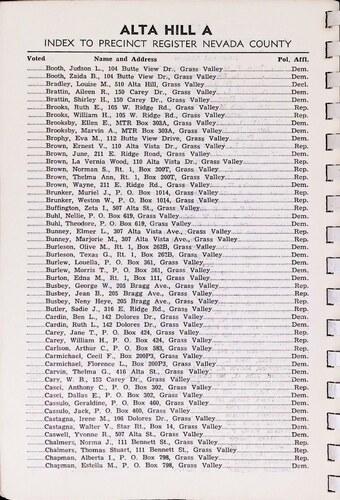 ALTA HILL A
INDEX TO PRECINCT REGISTER NEVADA COUNTY
Voted Name and Address Pol. Affl.
Booth, Judson L., 104 Butte View Dr., Grass Valley Dem.
Booth, Zaida B., 104 Butte View Dr., Grass Valley Dem.
Bradley, Louise M., 510 Alta Hill, Grass Valley Decl.
Brattin, Aileen R., 159 Carey Dr., Grass Valley Dem.
Brattin, Shirley H., 159 Carey Dr., Grass Valley Dem.
Brooks, Ruth E., 105 W. Ridge Rd., Grass Valley Rep.
Brooks, William H., 105 W. Ridge Rd., Grass Valley Rep.
Brooksby, Ellen E., MTR Box 303A, Grass Valley Dem.
Brooksby, Marvin A., MTR Box 303A, Grass Valley Dem.
Brophy, Eva M., 112 Butte View Drive, Grass Valley Dem.
Brown, Ernest V., 110 Alta Vista Dr., Grass Valley Rep.
Brown, June, 211 E. Ridge Road, Grass Valley Dem.
Brown, La Vernia Wood, 110 Alta Vista Dr., Grass Valley Rep.
Brown, Norman S., Rt. 1, Box 200T, Grass Valley Rep.
Brown, Thelma Ann, Rt. 1, Box 200T, Grass Valley Rep.
Brown, Wayne, 211 E. Ridge Rd., Grass Valley Dem.
Brunker, Muriel J., P. O. Box 1014, Grass Valley Rep.
Brunker, Weston W., P. O. Box 1014, Grass Valley Rep.
Buffington, Zeta I., 507 Alta St., Grass Valley Dem.
Buhl, Nellie, P. O. Box 619, Grass Valley Dem.
Buhl, Theodore, P. O. Box 619, Grass Valley Dem.
Bunney, Elmer L., 307 Alta Vista Ave., Grass Valley Rep.
Bunney, Marjorie M., 307 Alta Vista Ave., Grass Valley Rep.
Burleson, Olive M., Rt. 1, Box 262B, Grass Valley Dem.
Burleson, Texas G., Rt. 1, Box 262B, Grass Valley Dem.
Burlew, Louella, P. O. Box 361, Grass Valley Dem.
Burlew, Morris T., P. O. Box 361, Grass Valley Dem.
Burton, Edna M., Rt. 1, Box 111, Grass Valley Dem.
Busbey, George W., 205 Bragg Ave., Grass Valley Rep.
Busbey, Jean B., 205 Bragg Ave., Grass Valley Rep.
Busbey, Neny Heye, 205 Bragg Ave., Grass Valley Rep.
Butler, Sadie J., 316 E. Ridge Rd., Grass Valley Rep.
Cardin, Ben L., 142 Dolores Dr., Grass Valley Dem.
Cardin, Ruth L., 142 Dolores Dr., Grass Valley Dem.
Carey, Jane T., P. O. Box 424, Grass Valley Rep.
Carey, William H., P. O. Box 424, Grass Valley Rep.
Carlson, Arthur C., P. O. Box 583, Grass Valley Rep.
Carmichael, Cecil F., Box 200P3, Grass Valley Dem.
Carmichael, Florence L., Box 200P3, Grass Valley Dem.
Carvin, Thelma G., 416 Alta St., Grass Valley Dem.
Cary, W. B., 153 Carey Dr., Grass Valley Dem.
Casci, Anthony C., P. O. Box 302, Grass Valley Rep.
Casci, Dallas E., P. O. Box 302, Grass Valley Dem.
Cassulo, Geraldine, P. O. Box 460, Grass Valley Rep.
Cassulo, Jack, P. O. Box 460, Grass Valley Dem.
Castagna, Irene M., 106 Dolores Dr., Grass Valley Dem.
Castagna, Walter V., Star Rt., Box 14, Grass Valley Dem.
Caswell, Yvonne R., 507 Alta St., Grass Valley Dem.
Chalmers, Norma J., 111 Bennett St., Grass Valley Rep.
Chalmers, Thomas Stuart, 111 Bennett St., Grass Valley Rep.
Chapman, Alberta I., P. O. Box 798, Grass Valley Rep.
Chapman, Estella M., P. O. Box 798, Grass Valley Dem.